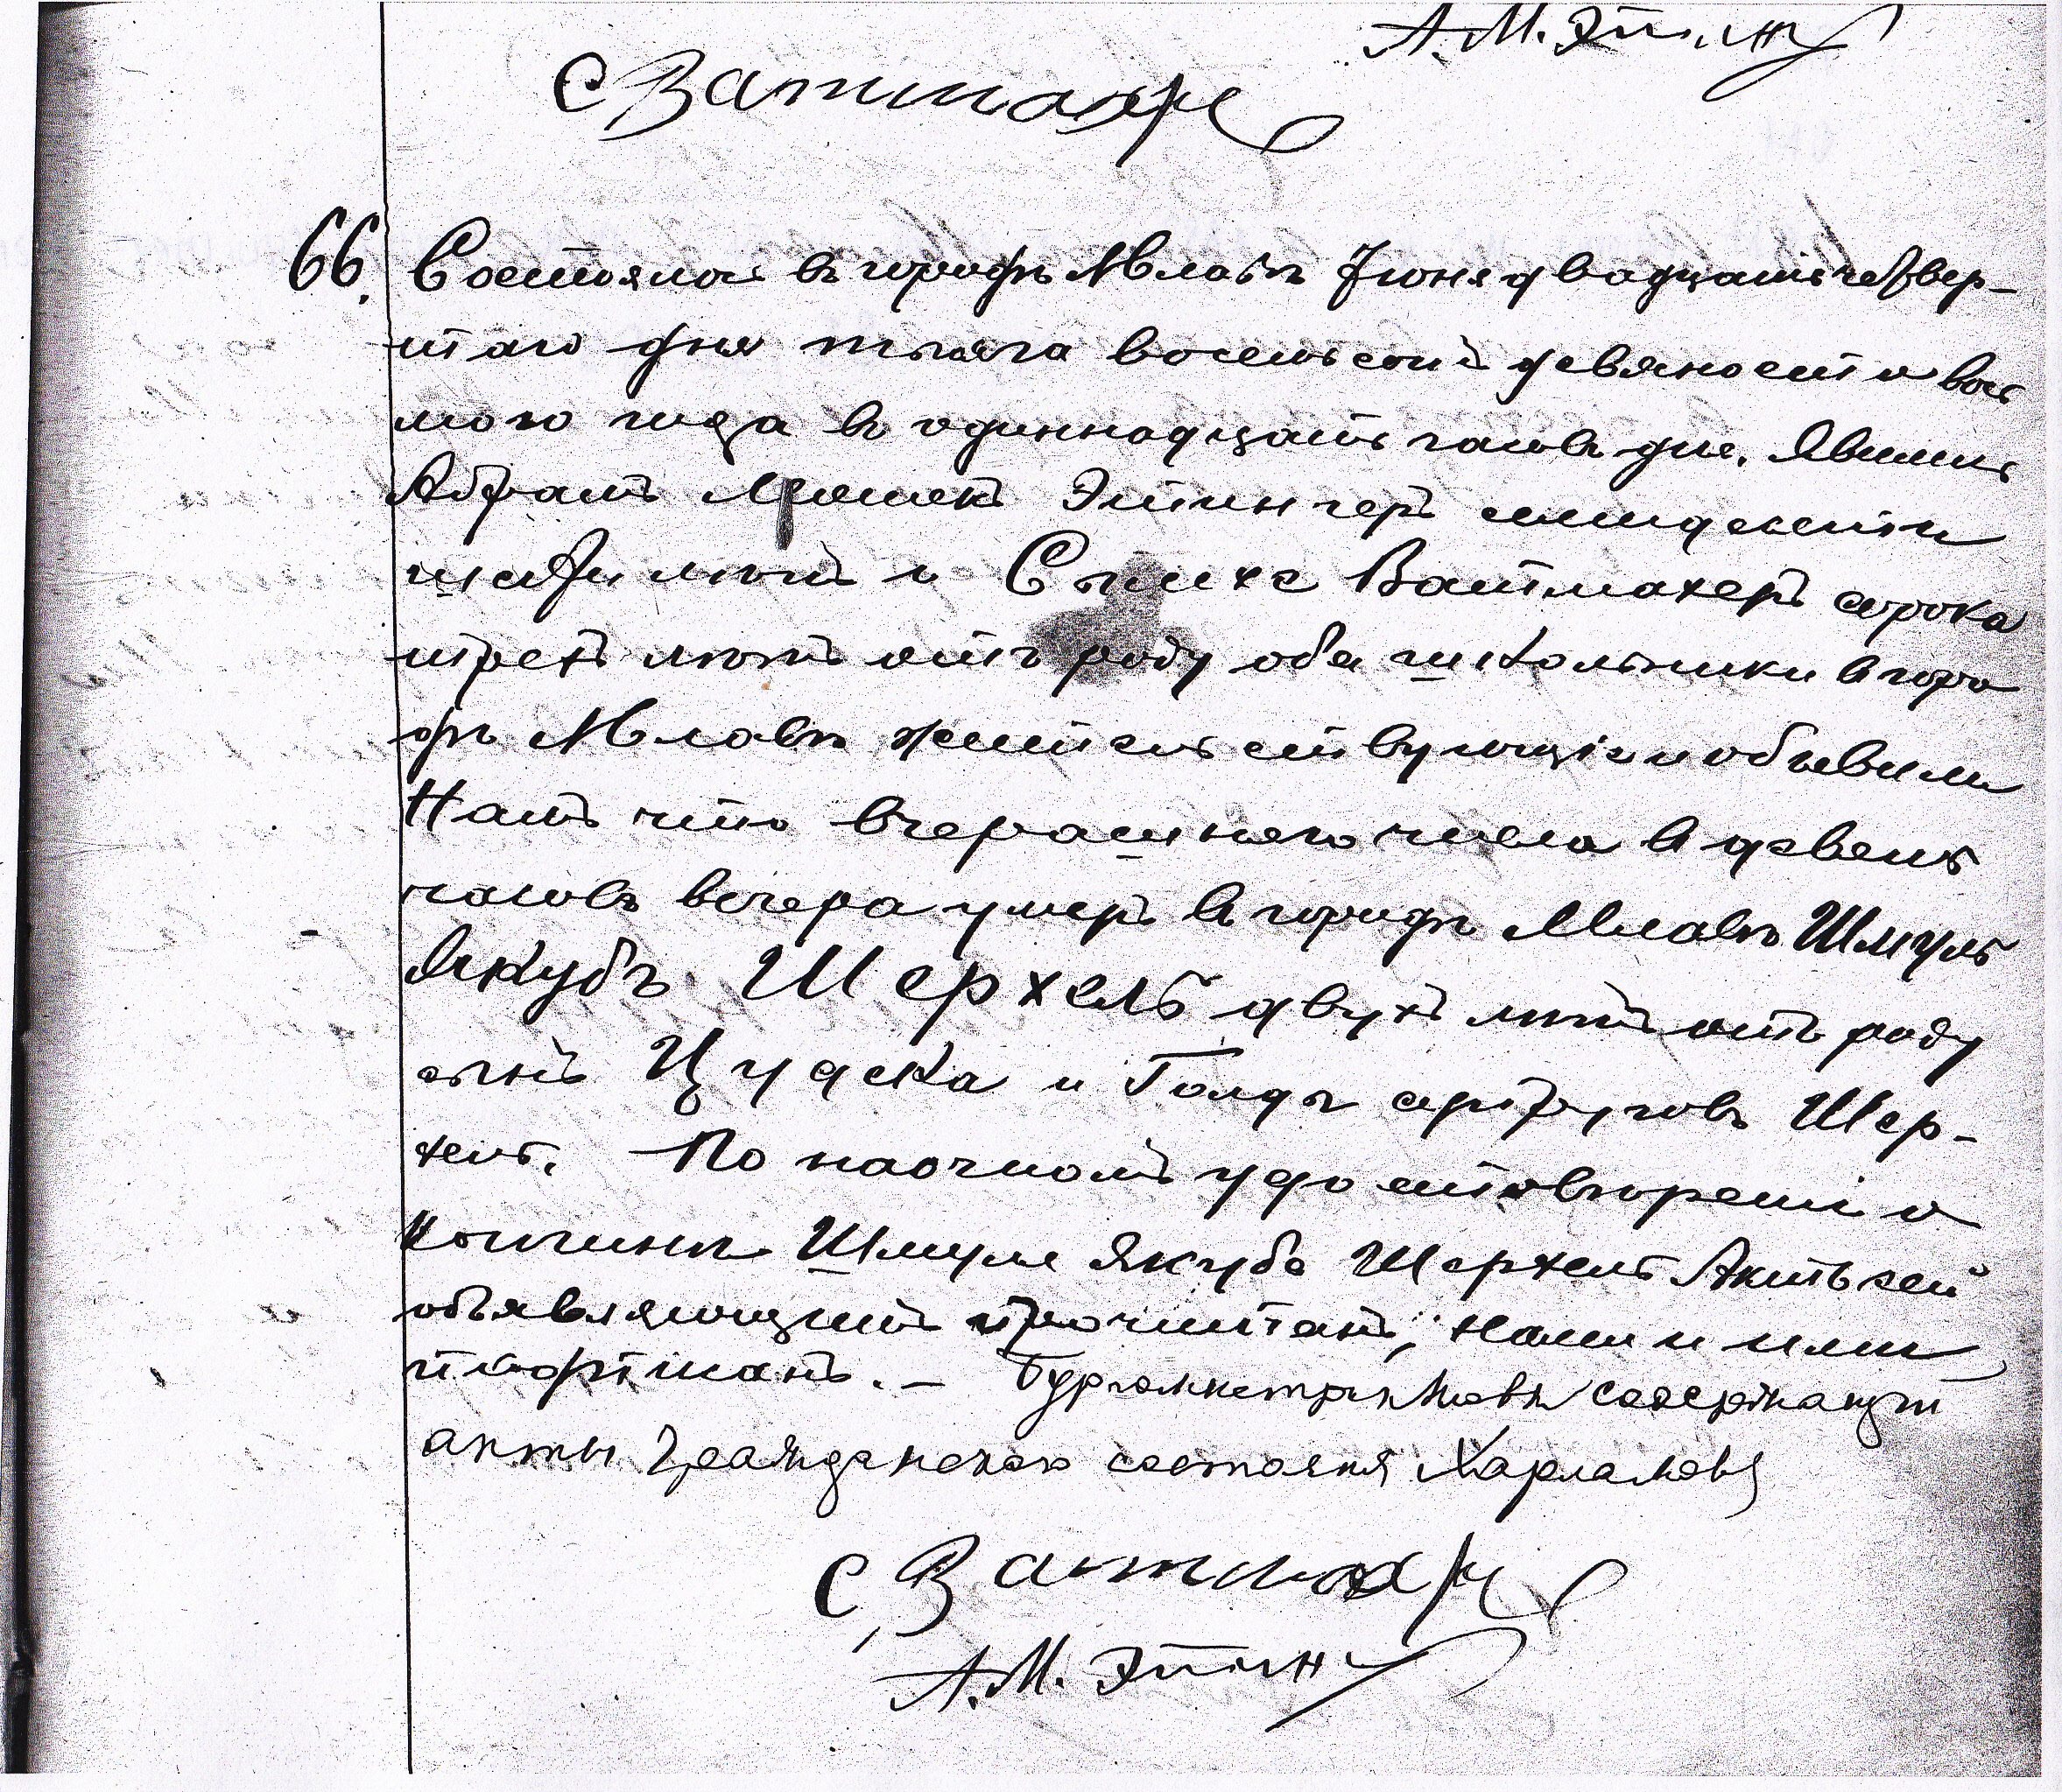 А. М. Эттинг
С Ватмахер
66. Состоялось въ городѣ Млавѣ Іюня двадцать четвер-
таго дня тысяча восемьсотъ девяносто вось
мого года въ одиннадцать часовъ дня. Явились
Абрамъ Мошекъ Эттингеръ шестидесяти
лѣтъ и Симха Ватмахеръ сорока
трехъ лѣтъ отъ роду оба школьники въ горо
дѣ Млавѣ жительствующіе и объявили
Намъ что вчерашняго числа въ девять
часовъ вечера умеръ въ городѣ Млавѣ Шмуль
Якубъ Шерхель двухъ лѣтъ отъ роду
сынъ Цудека и Голды супруговъ Шер-
хель. По наочномъ удостовѣреніи о
кончинѣ Шмуля Якуба Шерхель Актъ сей
объявляющимъ прочитанъ, Нами и ими
подписанъ. — Бургомистръ Млавы содержащій
акты гражданского состоянія Харламовъ
С, Ватмахер
А. М. Эттинг